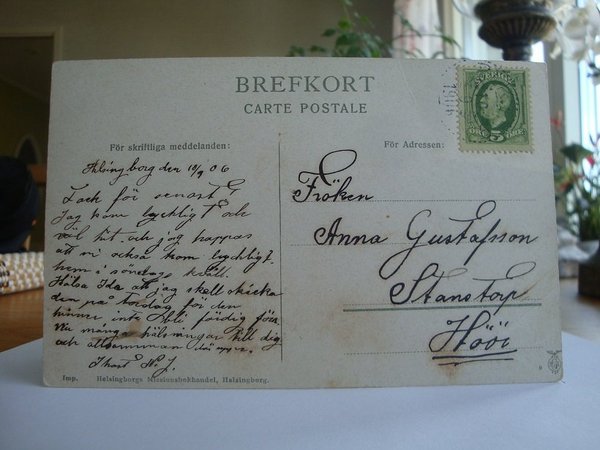 BREFKORT
CARTE POSTALE
För skriftliga meddelanden:
För Adressen:
SVERIGE
ÖRE 5 ÖRE
Helsingborg den 10/9 06
Tack för senast!
Jag kom lyckligt och
väl hit och jag hoppas
att ni också kom lyckligt
hem i söndags kväll.
Hälsa Ida att jag skall skicka
den på torsdag för den
hinner inte bli färdig förr
Nu många hälsningar till dig
och allesamman din
Fröken
Anna Gustafsson
Stanstorp
Höör
Imp. Helsingborgs Missionsbokhandel, Helsingborg.